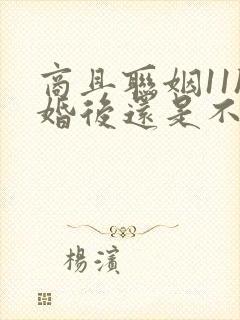 商且聯姻11
婚後還是不
楊濱